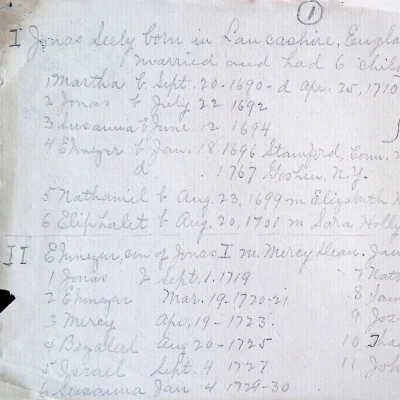 1
I Jonas Seely born in Lancashire, Engla
married and had 6 chil
1 Martha b Sept. 20-1690-d Apr. 25, 1710
2 Jonas b July 22 1692
3 Susanna b June 12 1694
4 Ebenezer b Jan. 18 1696 Stamford, Conn.
d 1767 Goshen, N.Y.
5 Nathaniel b Aug. 23, 1699 m Elizabeth
6 Eliphalet b Aug. 20, 1701 m Sara Holly
II Ebenezer, son of Jonas I m. Mercy Dean. Jan
1 Jonas b Sept. 1. 1719 7 Nat
2 Ebenezer Mar. 19-1720-21 8 Sam
3 Mercy Apr. 19-1723. 9 Jos
4 Bezaleel Aug 20-1725 10 Tha
5 Israel Sept. 4 1727 11 Joh
6 Susanna Jan 4 1729-30